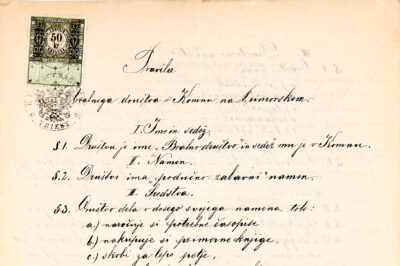 50
Pravila
bralnega društva v Komnu na Primorskem.
I. Ime in sedež.
§1. Društvu je ime „Bralno društvo" in sedež mu je v Komnu.
II. Namen.
§.2. Društvo ima „podučno zabavni" namen.
III. Sredstva.
§3. Društvo dela v dosego svojega namena to le:
a.) naročuje si potrebne časopise
b.) nakupuje si primerne knjige.
c.) skrbi za lepo petje,